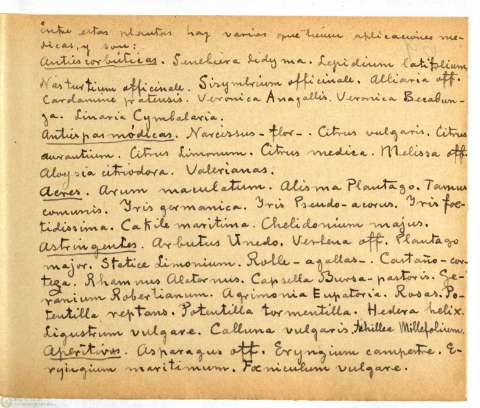 Entre estas plantas hay varias que tienen aplicaciones me-
dicas, y son:
Antiescorbúticas. Senebiera didyma. Lepidium latifolium
Nasturtium officinale. Sisymbrium officinale. Alliaria off.
Cardamine pratensis. Veronica Anagallis. Veronica Becabun-
ga. Linaria Cymbalaria.
Antiespamódicas. Narcissus-flor-. Citrus vulgaris. Citrus
aurantium. Citrus Limonum. Citrus medica. Melissa off.
Aloysia citriodora. Valerianas.
Acres. Arum maculatum. Alisma Plantago. Tamus
comunis. Iris germanica. Iris Pseudo-acorus. Iris foe-
tidissima. Cakile maritima. Chelidonium majus.
Astringentes. Arbutus Unedo. Verbena off. Plantago
major. Statice Limonium. Roble-agallas-. Castaño-cor-
tega. Rhamnus Alaternus. Capsella Bursa-pastoris. Ge-
ranium Robertianum. Agrimonia Eupatoria. Rosas. Po-
tentilla reptans. Potentilla tormentilla. Hedera helix.
Ligustrum vulgare. Calluna vulgaris. Achillea Millefolium.
Aperitivos. Asparagus off. Eryngium campestre. E-
ryngium maritimum. Fœniculum vulgare.